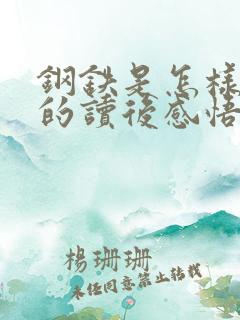 鋼鉄是怎様
的讀後感悟
楊珊珊
未経同意禁止转載